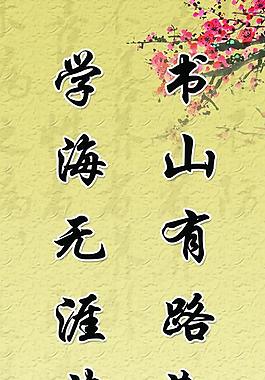 书山有路
学海无涯